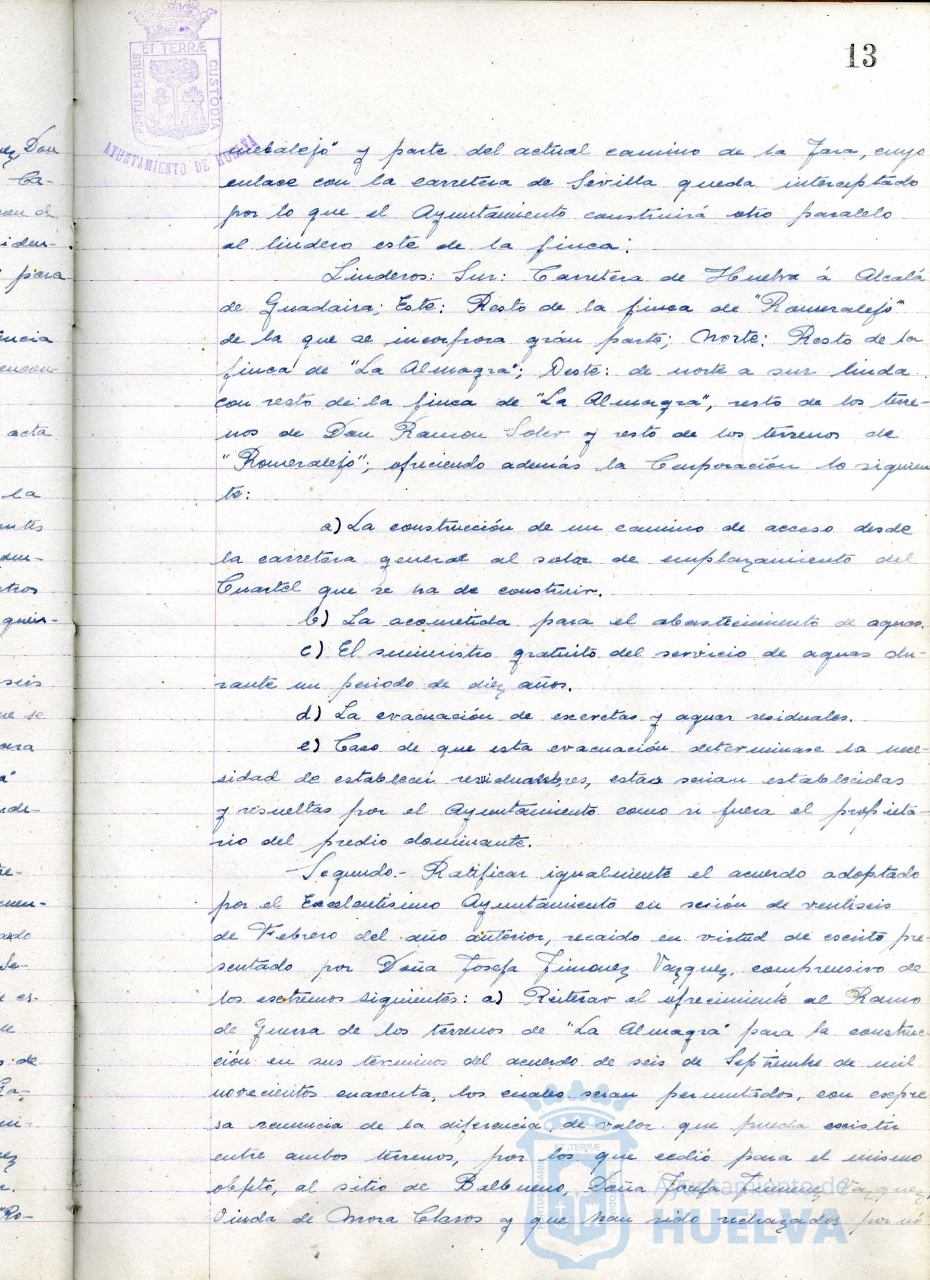 13
PORTUS MARIS
ET TERRÆ
CUSTODIA
AYUNTAMIENTO DE HUELVA
meralejo" y parte del actual camino de la Jara, cuyo
enlace con la carretera de Sevilla queda interceptado
por lo que el Ayuntamiento construirá otro paralelo
al lindero este de la finca:
Linderos: Sur: Carretera de Huelva á Alcalá
de Guadaira; Este: Resto de la finca de "Romeralejo"
de la que se incorpora grán parte; Norte: Resto de la
finca de "La Almagra"; Oeste: de norte a sur linda
con resto de la finca de "La Almagra", resto de los terre-
nos de Don Ramon Soler y resto de los terrenos de
"Romeralejo"; ofreciendo además la Corporación lo siguien
te:
a) La construcción de un camino de acceso desde
la carretera general al solar de emplazamiento del
Cuartel que se ha de construir.
b) La acometida para el abastecimiento de aguas.
c) El suministro gratuito del servicio de aguas du-
rante un periodo de diez años.
d) La evacuación de excretas y aguas residuales.
e) Caso de que esta evacuación determinase la nece-
sidad de establecer estas serian establecidas
y resueltas por el Ayuntamiento como si fuera el propieta-
rio del predio dominante.
-Segundo.- Ratificar igualmente el acuerdo adoptado
por el Excelentísimo Ayuntamiento en sesión de ventiseis
de Febrero del año anterior, recaido en virtud de escrito pre-
sentado por Doña Josefa Jimenez Vazquez, comprensivo de
los extremos siguientes: a) Reiterar el ofrecimiento al Ramo
de Guerra de los terrenos de "La Almagra" para la construc-
ción en sus términos del acuerdo de seis de Septiembre de mil
novecientos cuarenta, los cuales seran permutados, con expre
sa renuncia de la diferencia de valor que pueda existir
entre ambos terrenos, por los que cedió para el mismo
objeto, al sitio de Balbueno, Doña Josefa Jimenez Vazquez,
Viuda de Mora Claros y que han sido rechazados por nó
Ayuntamiento de
HUELVA